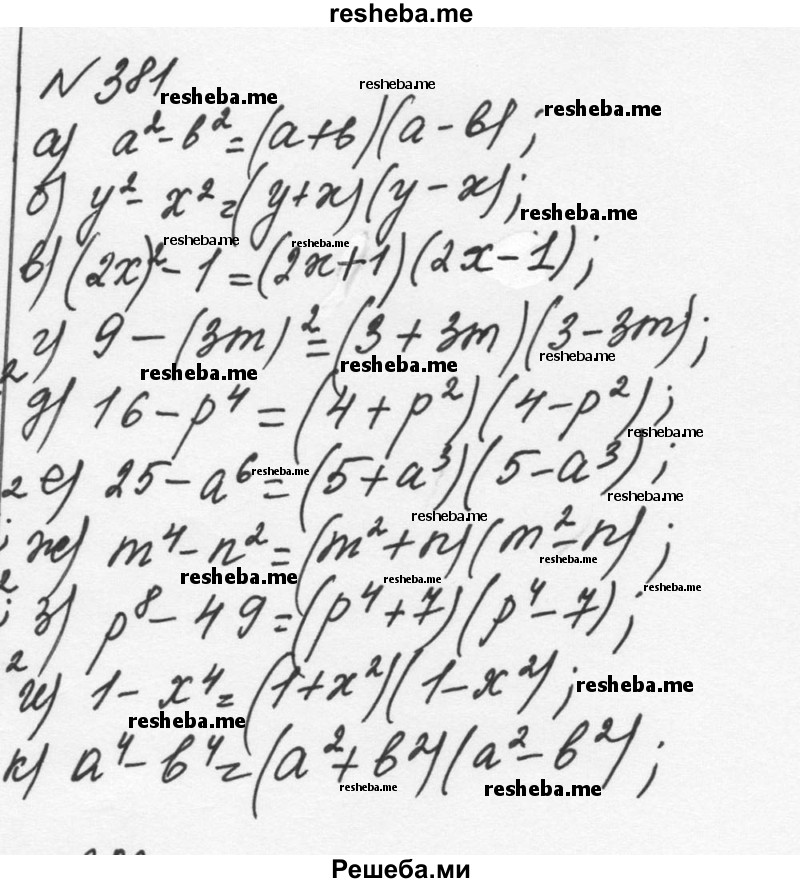 resheba.me
№ 381 resheba.me resheba.me
а) a² - b² = (a + b)(a - b); resheba.me
б) y² - x² = (y + x)(y - x); resheba.me
в) (2x)² - 1 = (2x + 1)(2x - 1); resheba.me resheba.me
г) 9 - (3m)² = (3 + 3m)(3 - 3m); resheba.me
resheba.me resheba.me
д) 16 - p⁴ = (4 + p²)(4 - p²); resheba.me
е) 25 - a⁶ = (5 + a³)(5 - a³); resheba.me resheba.me
resheba.me
ж) m⁴ - n² = (m² + n)(m² - n); resheba.me
resheba.me resheba.me resheba.me
з) p⁸ - 49 = (p⁴ + 7)(p⁴ - 7);
и) 1 - x⁴ = (1 + x²)(1 - x²); resheba.me
resheba.me
к) a⁴ - b⁴ = (a² + b²)(a² - b²);
resheba.me resheba.me
Решеба.ми